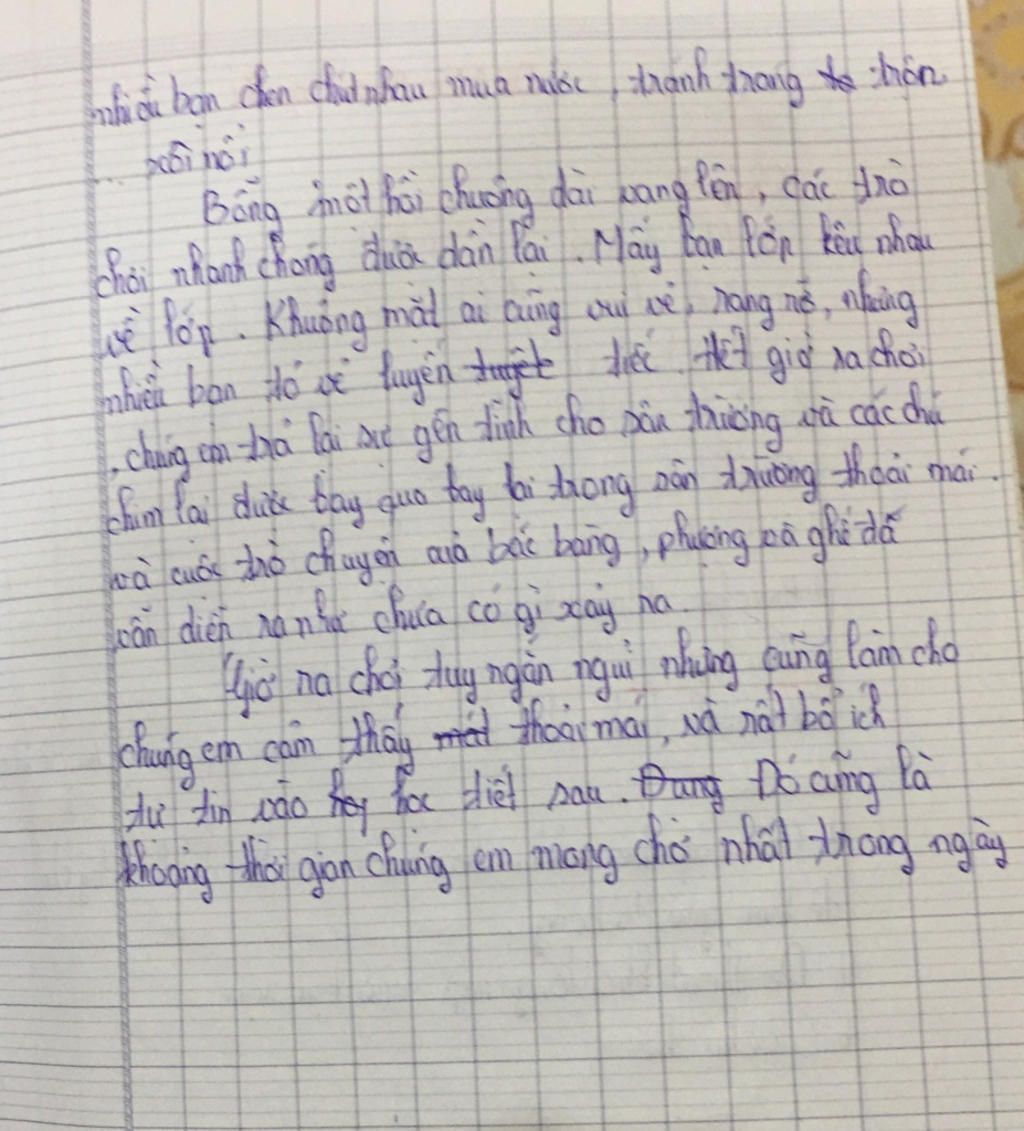 nhiều bạn chen chút nhau mua nước, tranh trang trôn
xôi nổi
Bỗng một hồi chuông dài vang lên, các trò
chơi nhanh chóng được dán lại. Mấy bạn lớn kêu nhau
về lớp. Khuông mặt ai cũng vui vẻ, rạng rỡ, nhưng
nhiều bạn tỏ vẻ luyến tiếc. Hết giờ ra chơi
, chúng em trả lại sự yên tĩnh cho sân trường và các chú
chim lại được bay qua bay lại trong sân trường thoải mái.
và cuộc trò chuyện của bác bàng, phượng và ghế đá
vẫn diễn ra như chưa có gì xảy ra.
Giờ ra chơi tuy ngắn ngủi nhưng cũng làm cho
chúng em cảm thấy thoải mái, và rất bổ ích
tự tin vào học tiết sau. Đó cũng là
khoảng thời gian chúng em mong chờ nhất trong ngày